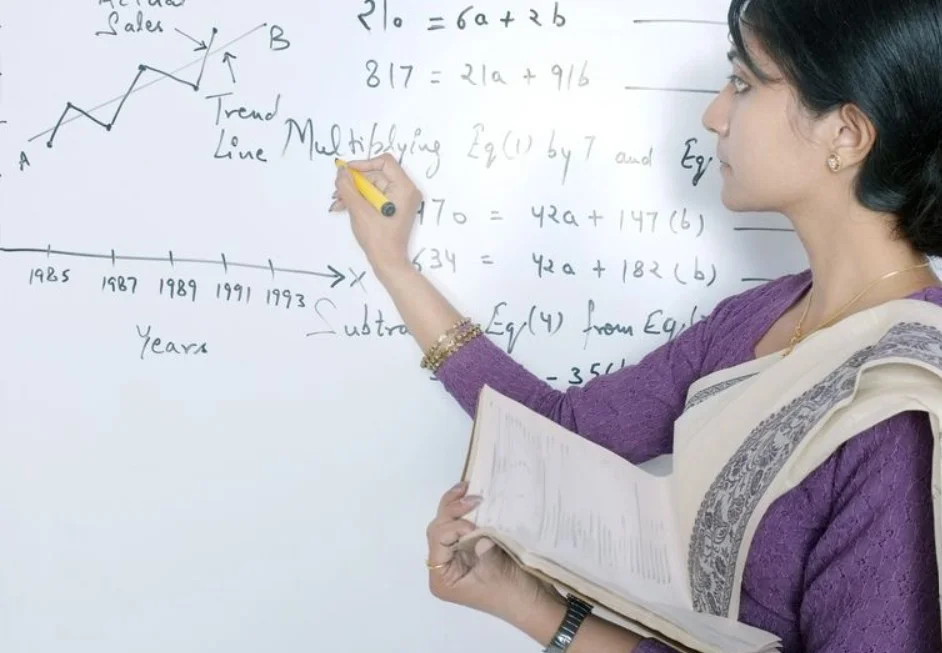 Actual
Sales
B
Trend
Line
A
1985 1987 1989 1991 1993 X
Years
210 = 6a + 2b
817 = 21a + 91b
Multiplying Eq(1) by 7 and Eq
470 = 42a + 147(b)
634 = 42a + 182(b)
Eq(4) from Eq
- 35